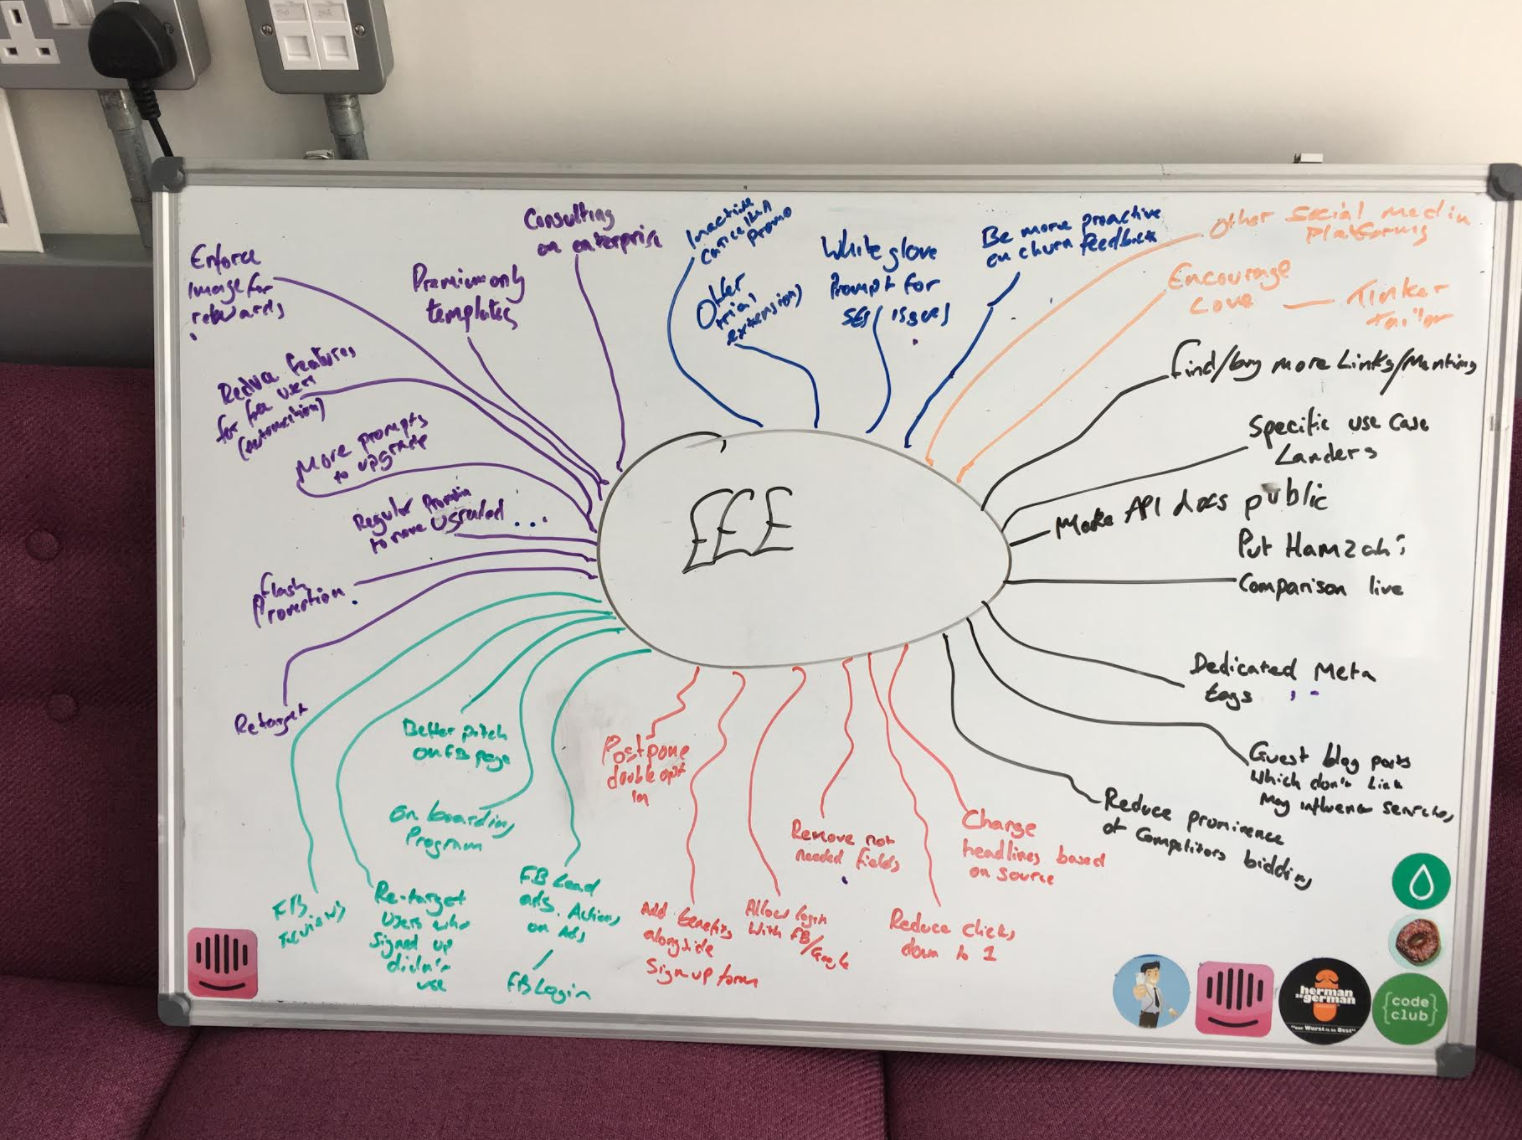 Enforce
image for
rewards
Premium only
templates
Consulting
on enterprise
Inactive
promo
Offer
trial
extensions
White glove
Prompt for
SES issues
Be more proactive
on churn feedback
Other Social media
Platforms
Encourage
Love — Tinker
tailor
Reduce features
for free users
(automation)
More prompts
to upgrade
Regular
to none
...
Flash
Promotion
Retarget
£££
Find/buy more Links/Mentions
Specific use case
Landers
Make API docs public
Put Hamzah's
Comparison live
Dedicated Meta
tags
Guest blog posts
Which don't Link
May influence searches
Reduce prominence
of Competitors bidding
Better pitch
on FB page
On boarding
Program
FB
Re-target
Users who
Signed up
didn't
use
FB Lead
ads. Actions
on Ads
/
FB Login
Postpone
double opt
in
Add benefits
alongside
Sign-up form
Allow login
With FB/
Google
Remove not
needed fields
Reduce clicks
down to 1
Change
headlines based
on source
herman
ze german
"our Wurst is de Best"
{code
club}